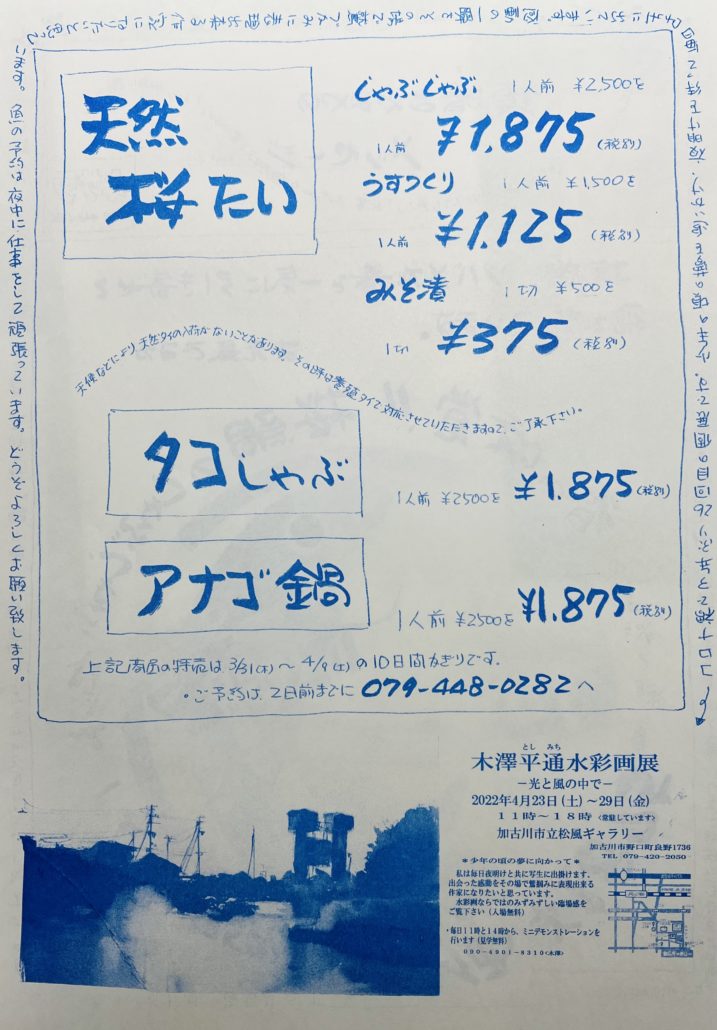 天然
桜たい
しゃぶしゃぶ 1人前 ¥2,500を
1人前 ¥1,875(税別)
うすつくり 1人前 ¥1,500を
1人前 ¥1,125(税別)
みそ漬 1切 ¥500を
1切 ¥375(税別)
天候などにより天然タイの入荷がないことがあります。その時は養殖タイで対応させていただきますので、ご了承下さい。
タコしゃぶ
1人前 ¥2500を ¥1.875(税別)
アナゴ鍋
1人前 ¥2500を ¥1.875(税別)
上記商品の特売は3/31(木)～4/9(土)の10日間かぎりです。
・ご予約は、2日前までに079-448-0282へ
コロナ禍で3年ぶり26回目の個展です。少年の頃の夢を追いかけ、夜明けを待って画
います。魚の予約は夜中に仕事をして頑張っています。どうぞよろしくお願い致します。
木澤平通水彩画展
とし みち
－光と風の中で－
2022年4月23日(土)～29日(金)
11時～18時〈常駐しています〉
加古川市立松風ギャラリー
加古川市野口町良野1736
TEL 079-420-2050
＊少年の頃の夢に向かって＊
私は毎日夜明けと共に写生に出掛けます。
出会った感動をその場で鷲掴みに表現出来る
作家になりたいと思っています。
水彩画ならではのみずみずしい臨場感を
ご覧下さい(入場無料)
・毎日11時と14時から、ミニデモンストレーションを
行います(見学無料)
090-4901-8310〈木澤〉